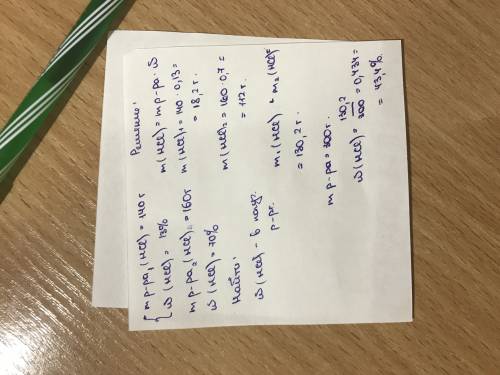 m р-ра₁(HCl) = 140 г
ω(HCl) = 13%
m р-ра₂(HCl) = 160г
ω(HCl) = 70%
Найти:
ω(HCl) - в получ.
р-ре.
Решение:
m(HCl) = m р-ра · ω
m(HCl)₁ = 140 · 0,13 =
= 18,2 г.
m(HCl)₂ = 160 · 0,7 =
= 112 г.
m₁(HCl) + m₂(HCl) =
= 130,2 г.
m р-ра = 300 г.
ω(HCl) = 130,2 / 300 = 0,434 =
= 43,4%.